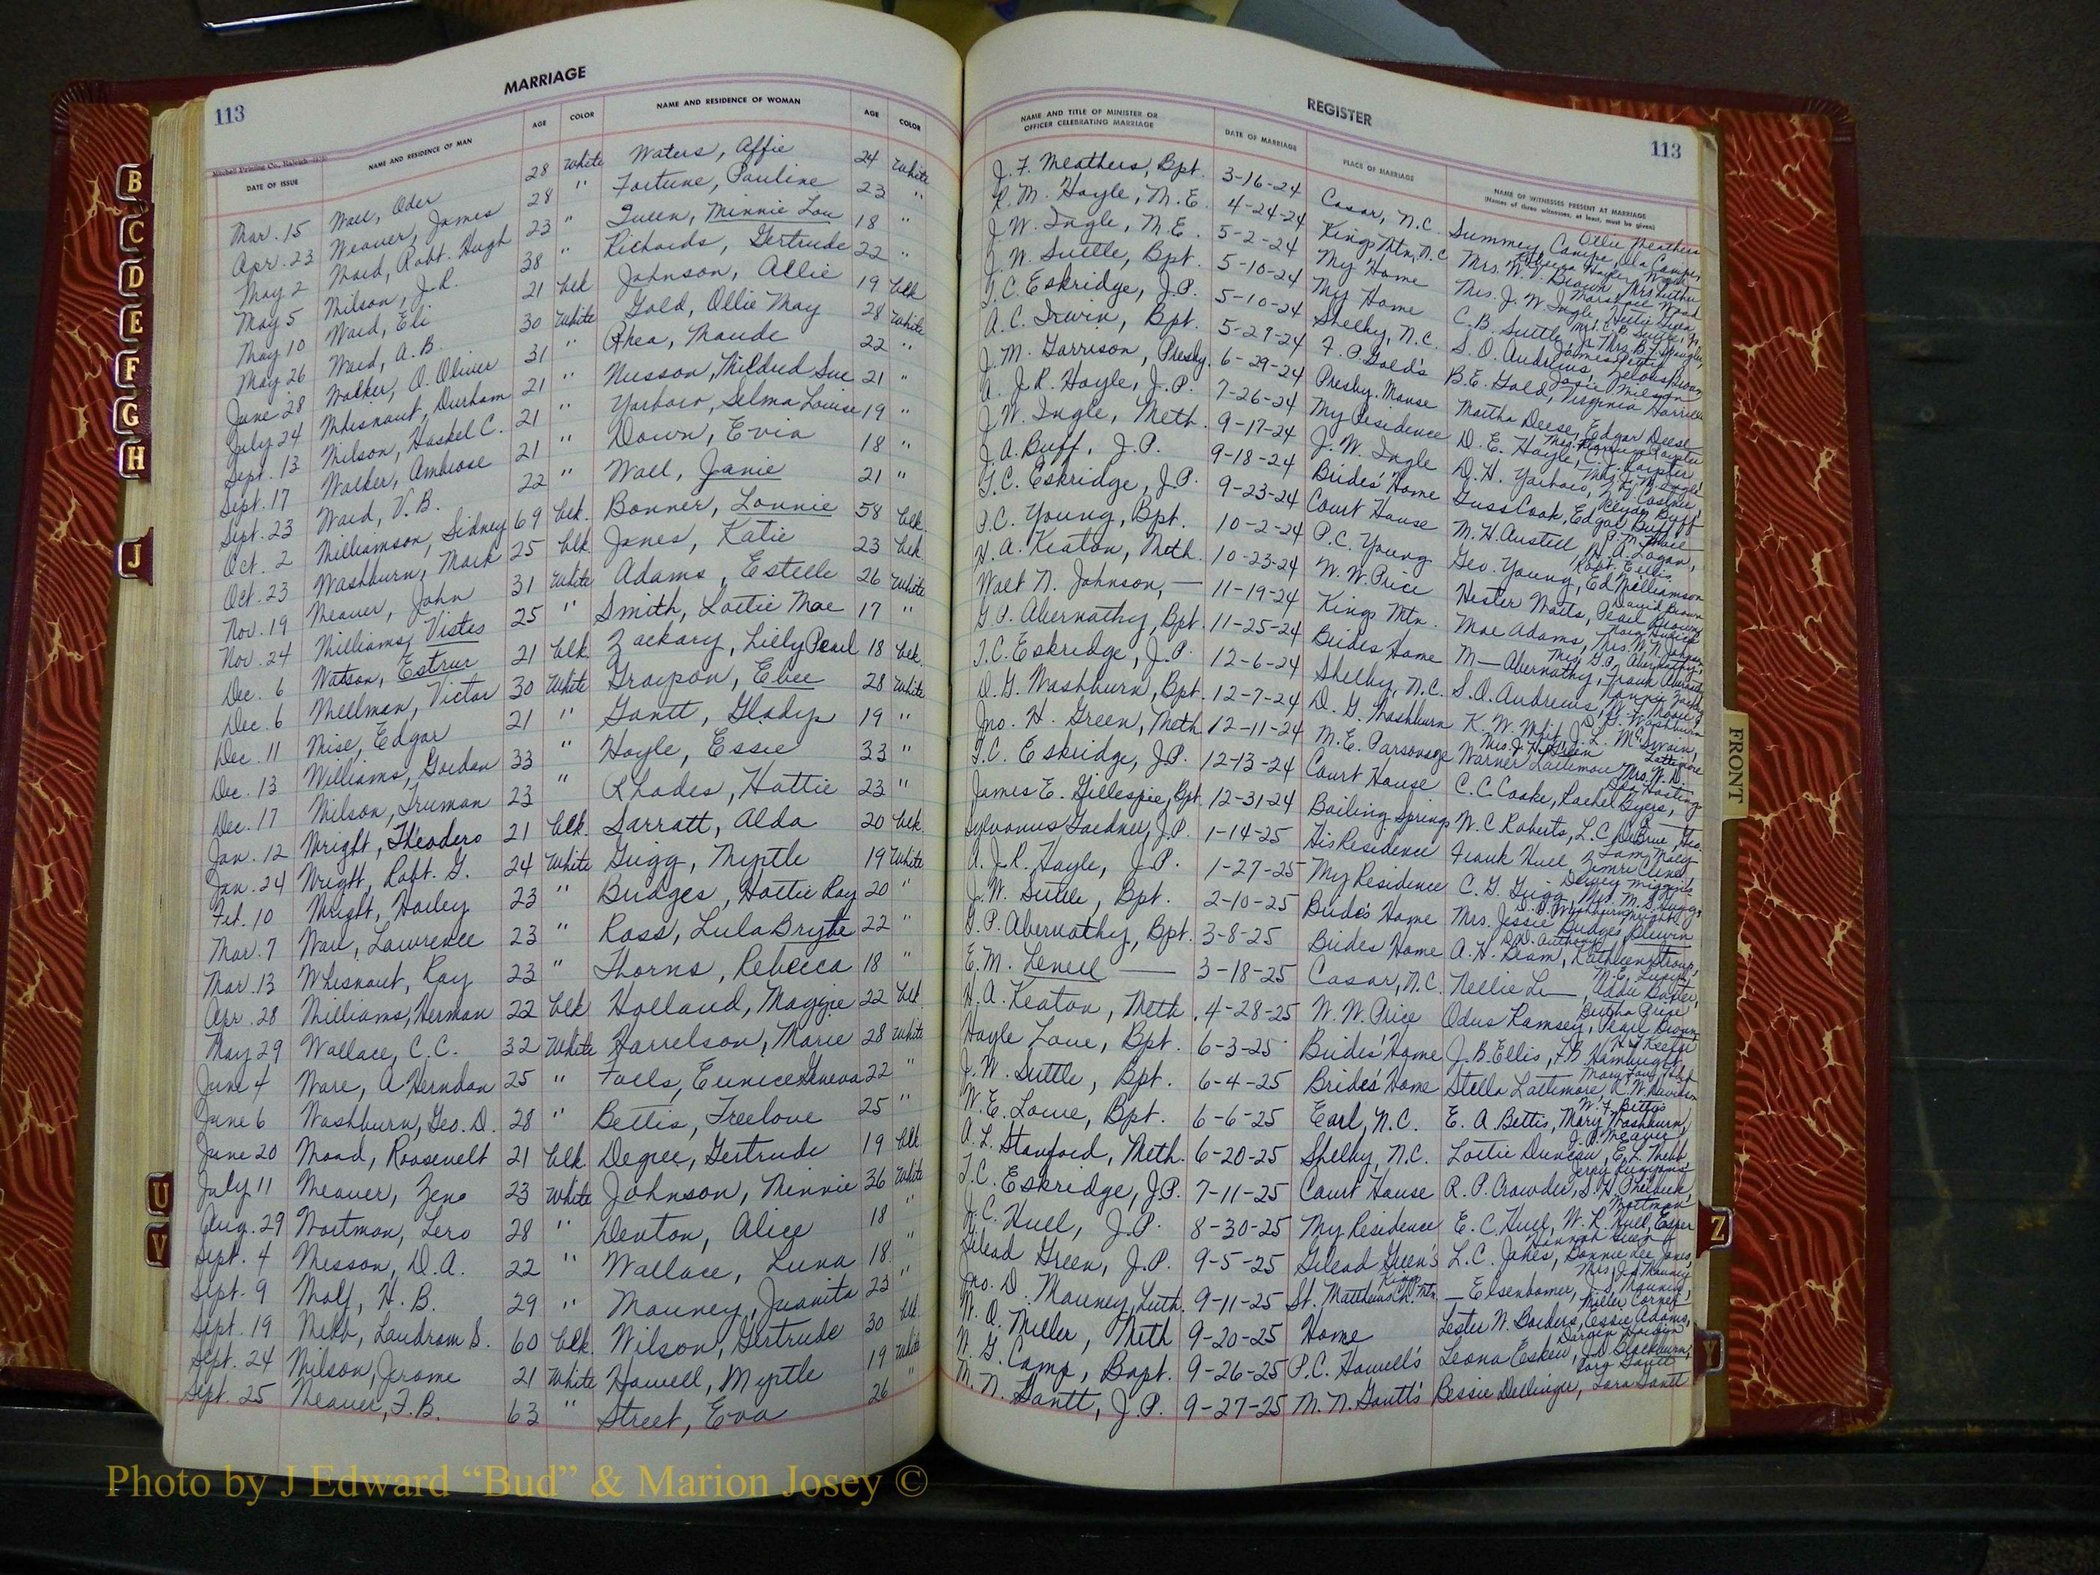 113
MARRIAGE
Mitchell Printing Co., Raleigh
DATE OF ISSUE
NAME AND RESIDENCE OF MAN
AGE
COLOR
NAME AND RESIDENCE OF WOMAN
AGE
COLOR
Mar. 15 Wall, Oder 28 White Waters, Affie 24 White
Apr. 23 Weaver, James 28 " Fortune, Pauline 23 "
May 2 Ward, Robt. Hugh 23 " Queen, Minnie Lou 18 "
May 5 Wilson, J.R. 38 " Richards, Gertrude 22 "
May 10 Ward, Eli 21 Clk Johnson, Allie 19 Clk
May 26 Ward, A.B. 30 White Gold, Ollie May 28 White
June 28 Walker, O. Oliver 31 " Rhea, Maude 22 "
July 24 Whisnant, Durham 21 " Musson, Mildred Sue 21 "
Sept. 13 Wilson, Haskel C. 21 " Yarboro, Selma Louise 19 "
Sept. 17 Walker, Ambrose 21 " Down, Evia 18 "
Sept. 23 Ward, V.B. 22 " Wall, Janie 21 "
Oct. 2 Williamson, Sidney 69 Clk. Bonner, Lonnie 58 Clk.
Oct. 23 Washburn, Mack 25 Clk. Jones, Katie 23 Clk
Nov. 19 Weaver, John 31 White Adams, Estelle 26 White
Nov. 24 Williams, Vistes 25 " Smith, Lottie Mae 17 "
Dec. 6 Watson, Estrur 21 Clk. Zackary, Lilly Pearl 18 Clk.
Dec. 6 Wellman, Victor 30 White Graypon, Ebee 28 White
Dec. 11 Wise, Edgar 21 " Gantt, Gladys 19 "
Dec. 13 Williams, Gordan 33 " Hoyle, Essie 33 "
Dec. 17 Wilson, Truman 23 " Rhodes, Hattie 23 "
Jan. 12 Wright, Theodero 21 Clk. Sarratt, Alda 20 Clk.
Jan. 24 Wright, Robt. G. 24 White Grigg, Myrtle 19 White
Feb. 10 Wright, Harley 23 " Bridges, Hattie Ray 20 "
Mar. 7 Ware, Lawrence 23 " Ross, Lula Bryte 22 "
Mar. 13 Whisnant, Ray 23 " Thorns, Rebecca 18 "
Apr. 28 Williams, Herman 22 Clk Holland, Maggie 22 Clk
May 29 Wallace, C.C. 32 White Harrelson, Marie 28 White
June 4 Ware, A. Herndon 25 " Falls, Eunice Geneva 22 "
June 6 Washburn, Geo. D. 28 " Bettis, Freelove 25 "
June 20 Wood, Roosevelt 21 Clk. Degree, Gertrude 19 Clk.
July 11 Weaver, Zeno 23 White Johnson, Minnie 36 White
Aug. 29 Wortman, Lero 28 " Denton, Alice 18 "
Sept. 4 Wesson, D.A. 22 " Wallace, Luna 18 "
Sept. 9 Wolf, H.B. 29 " Mauney, Juanita 23 "
Sept. 19 Webb, Laudrom S. 60 Clk. Wilson, Gertrude 30 Clk.
Sept. 24 Wilson, Jerome 21 White Howell, Myrtle 19 White
Sept. 25 Weaver, F.B. 63 " Street, Eva 26 "
REGISTER
113
NAME AND TITLE OF MINISTER OR
OFFICER CELEBRATING MARRIAGE
DATE OF MARRIAGE
PLACE OF MARRIAGE
NAME OF WITNESSES PRESENT AT MARRIAGE
(Names of three witnesses, at least, must be given)
J.F. Weathers, Bpt. 3-16-24 Casar, N.C. Summey Campe, Ila Campe, Ollie Weathers
R.M. Hoyle, M.E. 4-24-24 Kings Mtn, N.C.
J.W. Ingle, M.E. 5-2-24 My Home Mrs. J.W. Ingle
J.W. Suttle, Bpt. 5-10-24 My Home C.B. Suttle, Jr.
T.C. Eskridge, J.P. 5-10-24 Shelby, N.C. S.O. Andrews
A.C. Irwin, Bpt. 5-29-24 F.P. Gold's B.E. Gold, Virginia Harrill
J.M. Garrison, Presby. 6-29-24 Presby. Manse Martha Deese, Edgar Deese
A.J.R. Hoyle, J.P. 7-26-24 My Residence D.E. Hoyle
J.W. Ingle, Meth. 9-17-24 J.W. Ingle D.H. Yarboro
J.A. Buff, J.P. 9-18-24 Brides' Home Guss Cook, Edgar Buff, Clyde Buff
T.C. Eskridge, J.P. 9-23-24 Court House M.H. Austell, H.A. Logan,
P.C. Young, Bpt. 10-2-24 P.C. Young Geo. Young, Ed Williamson, Robt. Ellis
H.A. Keaton, Meth. 10-23-24 W.W. Price Hester Watts, Pearl Brown, David Brown
Walt N. Johnson, — 11-19-24 Kings Mtn. Mae Adams, Mrs. W.N. Johnson
G.P. Abernathy, Bpt. 11-25-24 Brides Home M— Abernathy, Frank Abernathy, Mrs. G.P. Abernathy
T.C. Eskridge, J.P. 12-6-24 Shelby, N.C. S.O. Andrews
D.G. Washburn, Bpt. 12-7-24 D.G. Washburn K.W. J.L. McSwain, D.G. Washburn
Jno. H. Green, Meth 12-11-24 M.E. Parsonage Warner Lattimore, Mrs. J.H. Green
T.C. Eskridge, J.P. 12-13-24 Court House C.C. Cooke, Rachel Byers,
James E. Gillespie, Bpt. 12-31-24 Boiling Springs W.C. Roberts, L.C.
Sylvanus Gardner, J.P. 1-14-25 His Residence Frank Hull
A.J.R. Hoyle, J.P. 1-27-25 My Residence C.G. Grigg
J.W. Suttle, Bpt. 2-10-25 Bride's Home Mrs. Jessie Bridges
G.P. Abernathy, Bpt. 3-8-25 Brides Home A.H. Beam
E.M. Lenell — 3-18-25 Casar, N.C. Nellie L—
H.A. Keaton, Meth. 4-28-25 W.W. Price Odus Ramsey, Pearl Brown, Bertha Price
Hoyle Love, Bpt. 6-3-25 Brides' Home J.B. Ellis, F.B. Hambright
J.W. Suttle, Bpt. 6-4-25 Brides' Home Stella Lattimore, R.W. Davidson
W.E. Lowe, Bpt. 6-6-25 Earl, N.C. E.A. Bettis, Mary Washburn, W.F. Bettis
A.L. Stanford, Meth. 6-20-25 Shelby, N.C. Lottie Duncan, E.L. Webb
T.C. Eskridge, J.P. 7-11-25 Court House R.P. Crowder, S.H.
J.C. Hull, J.P. 8-30-25 My Residence E.C. Hull, W.R. Hull, Esper Wortman
Gilead Green, J.P. 9-5-25 Gilead Green's L.C. Jones, Bonnie Lee Jones, Hannah Green
Jno. D. Mauney, Luth. 9-11-25 St. Matthews Ch. King Mtn. — Elsenhomer
W.O. Miller, Meth 9-20-25 Home Lester W. Borders, Essie Adams,
W.G. Camp, Bapt. 9-26-25 P.C. Howell's Leona Eskew, J.D. Blackburn,
M.N. Gantt, J.P. 9-27-25 M.N. Gantt's Bessie Dellinger, Lara Gantt
B
C
D
E
F
G
H
J
U
V
FRONT
Z
Y
Photo by J Edward “Bud” & Marion Josey ©